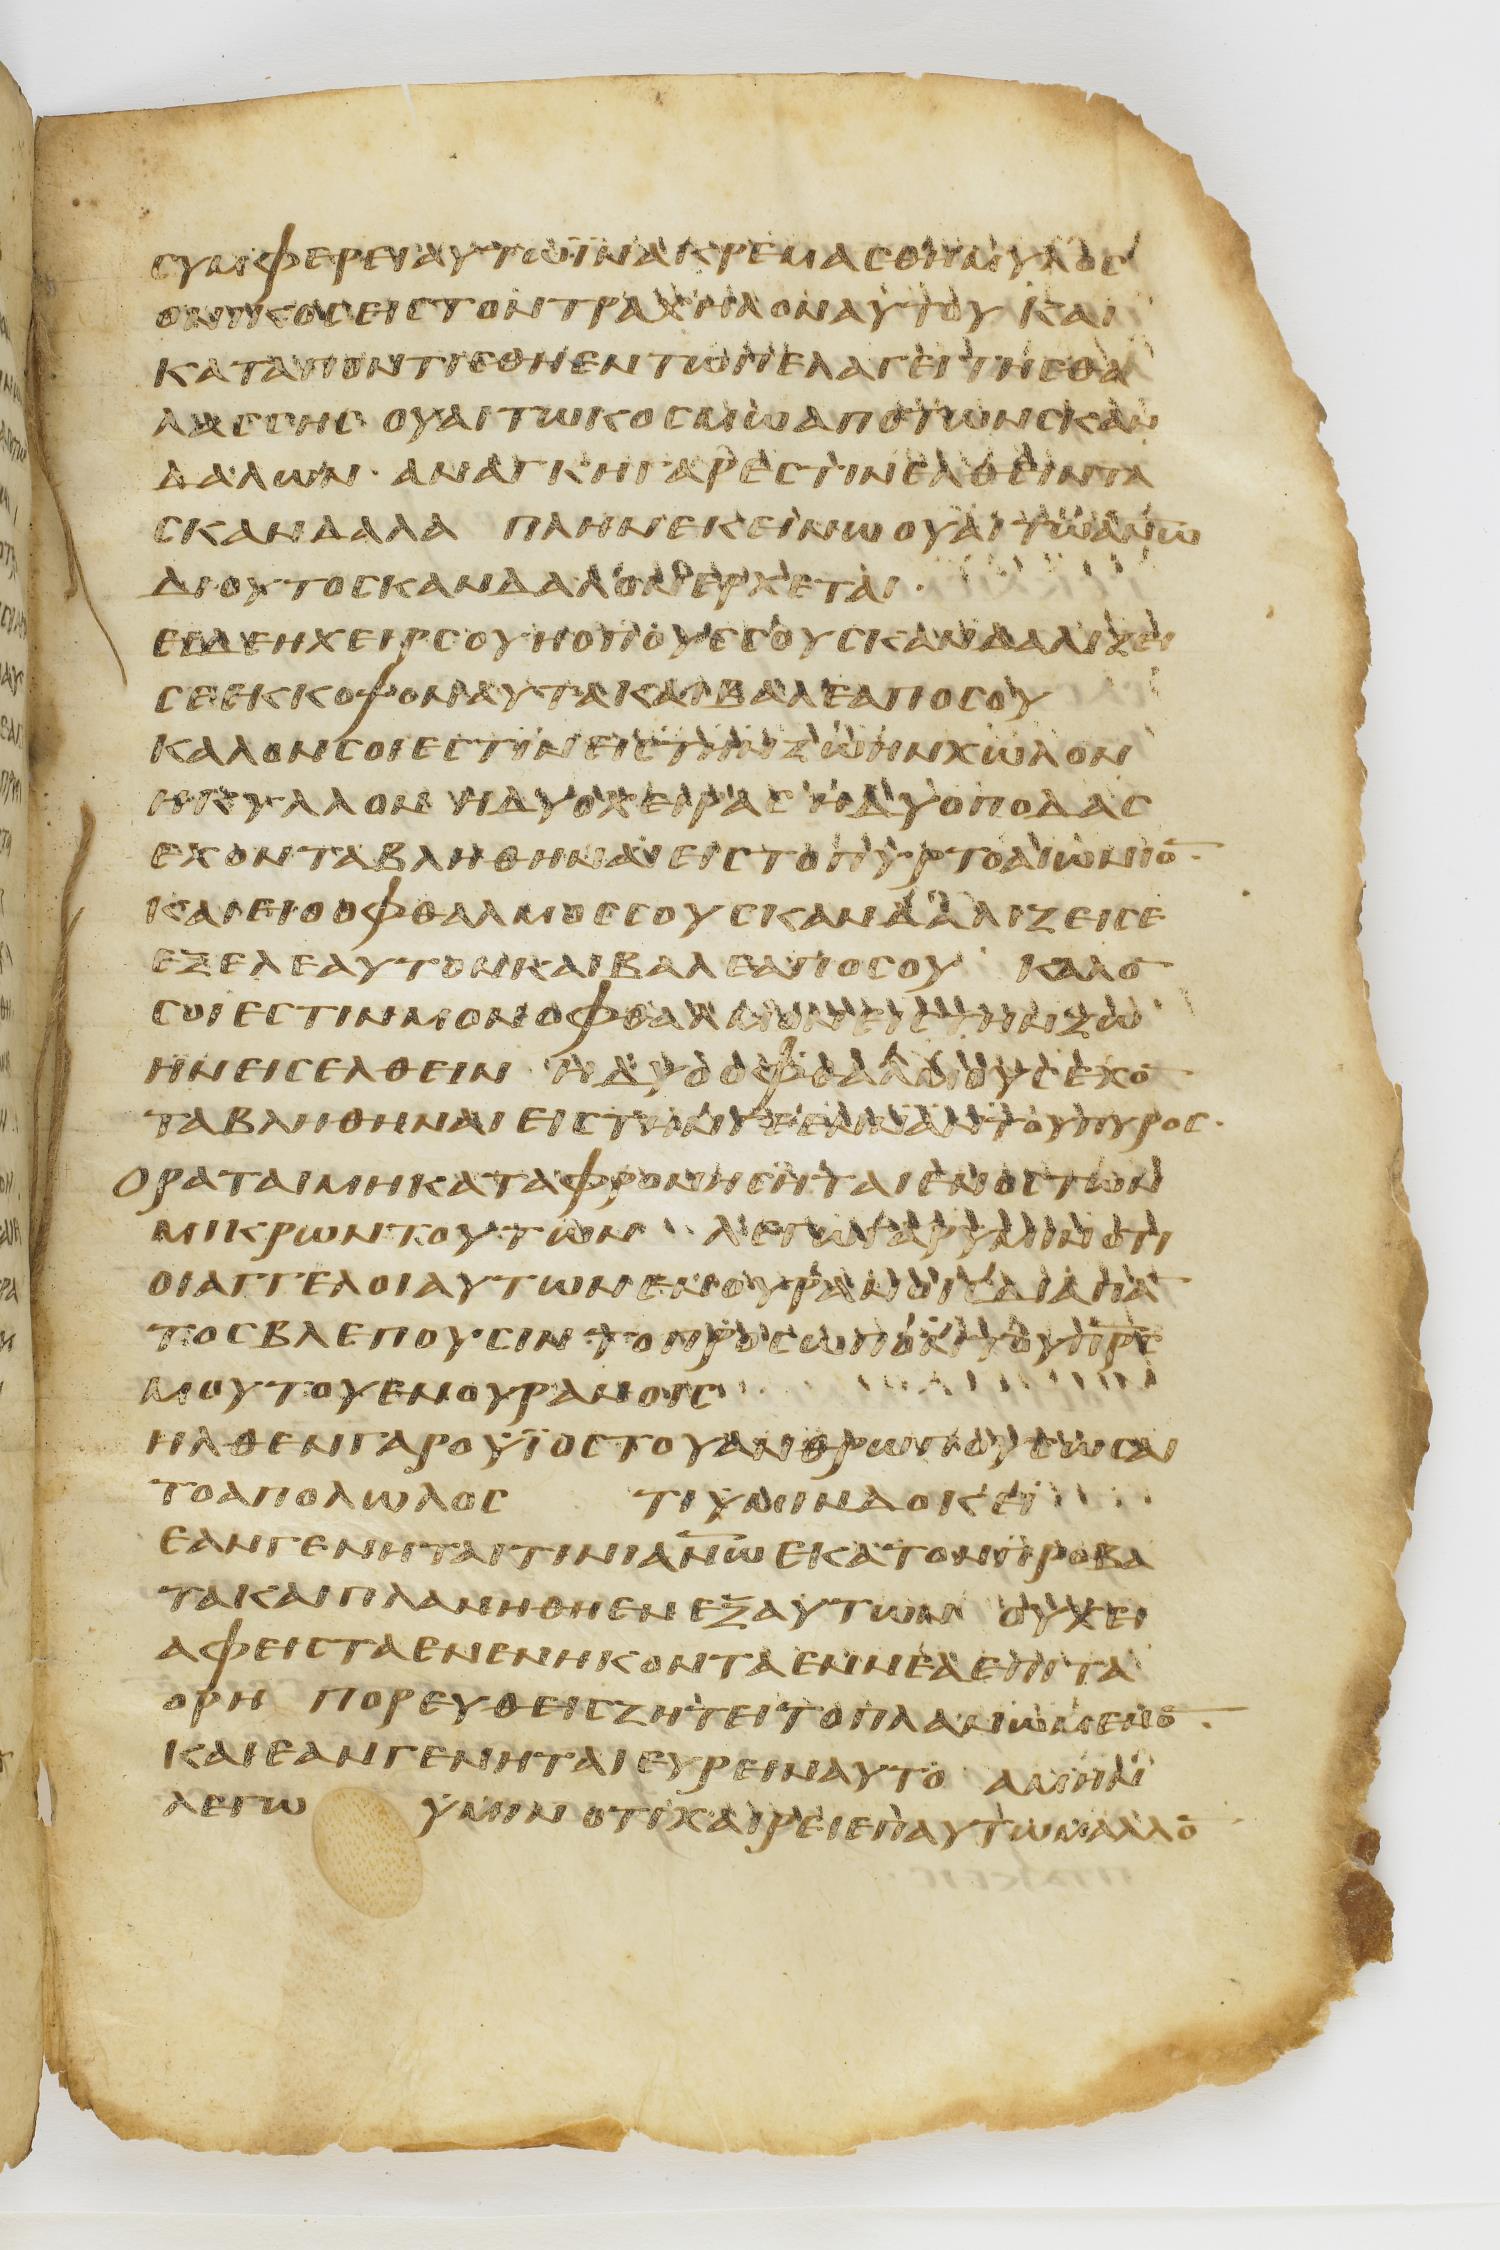 ϲυμφερειαυτωϊνακρεμαϲθημυλοϲ
ονικοϲειϲτοντραχηλοναυτουκαι
καταποντιϲθηεντωπελαγειτηϲθα
λαϲϲηϲ ουαιτωκοϲμωαποτωνϲκαν
δαλων· αναγκηγαρεϲτινελθειντα
ϲκανδαλα πληνεκεινωουαιτωαν̅ω̅
διουτοϲκανδαλονερχεται·
ειδεηχειρϲουηοπουϲϲουϲκανδαλιζει
ϲεεκκοψοναυτακαιβαλεαποϲου
καλονϲοιεϲτινειϲτηνζωηνχωλον
ηκυλλον ηδυοχειραϲηδυοποδαϲ
εχονταβληθηναιειϲτοπυρτοαιωνιο̅·
καιειοοφθαλμοϲϲουϲκανδαλιζειϲε
εξελεαυτονκαιβαλεαποϲου καλο̅
ϲοιεϲτινμονοφθαλμονειϲτηνζω
ηνειϲελθειν ηδυοοφθαλμουϲεχο̅
ταβληθηναιειϲτηνγεεναντουπυροϲ·
Οραταιμηκαταφρονηϲηταιενοϲτων
μικρωντουτων λεγωγαρυμινοτι
οιαγγελοιαυτωνενουρανοιϲδιαπα̅
τοϲβλεπουϲιντοπροϲωποντουπ̅ρ̅ϲ̅
μουτουενουρανοιϲ
ηλθενγαροϋϊοϲτουανθρωπουϲωϲαι
τοαπολωλοϲ τιϋμινδοκει
εανγενηταιτινιαν̅ω̅εκατονπροβα
τακαιπλανηθηενεξαυτων ουχει
αφειϲταενενηκονταεννεαεπιτα
ορη πορευθειϲζητειτοπλανωμενο̅·
καιεανγενηταιευρειναυτο αμην
λεγω ϋμινοτιχαιρειεπαυτωμαλλο̅